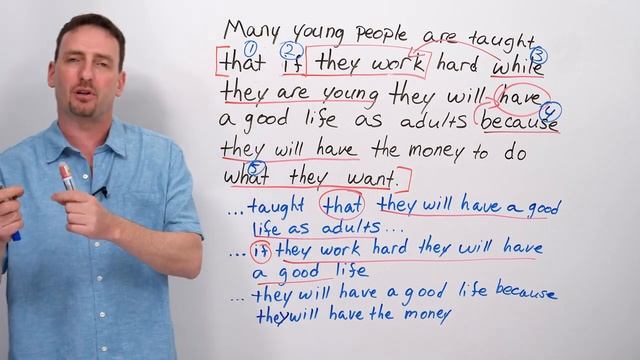 Many young people are taught
1 2 3
that if they work hard while
they are young they will have
4
a good life as adults because
they will have the money to do
5
what they want.
...taught that they will have a good
life as adults...
...if they work hard they will have
a good life
...they will have a good life because
they will have the money